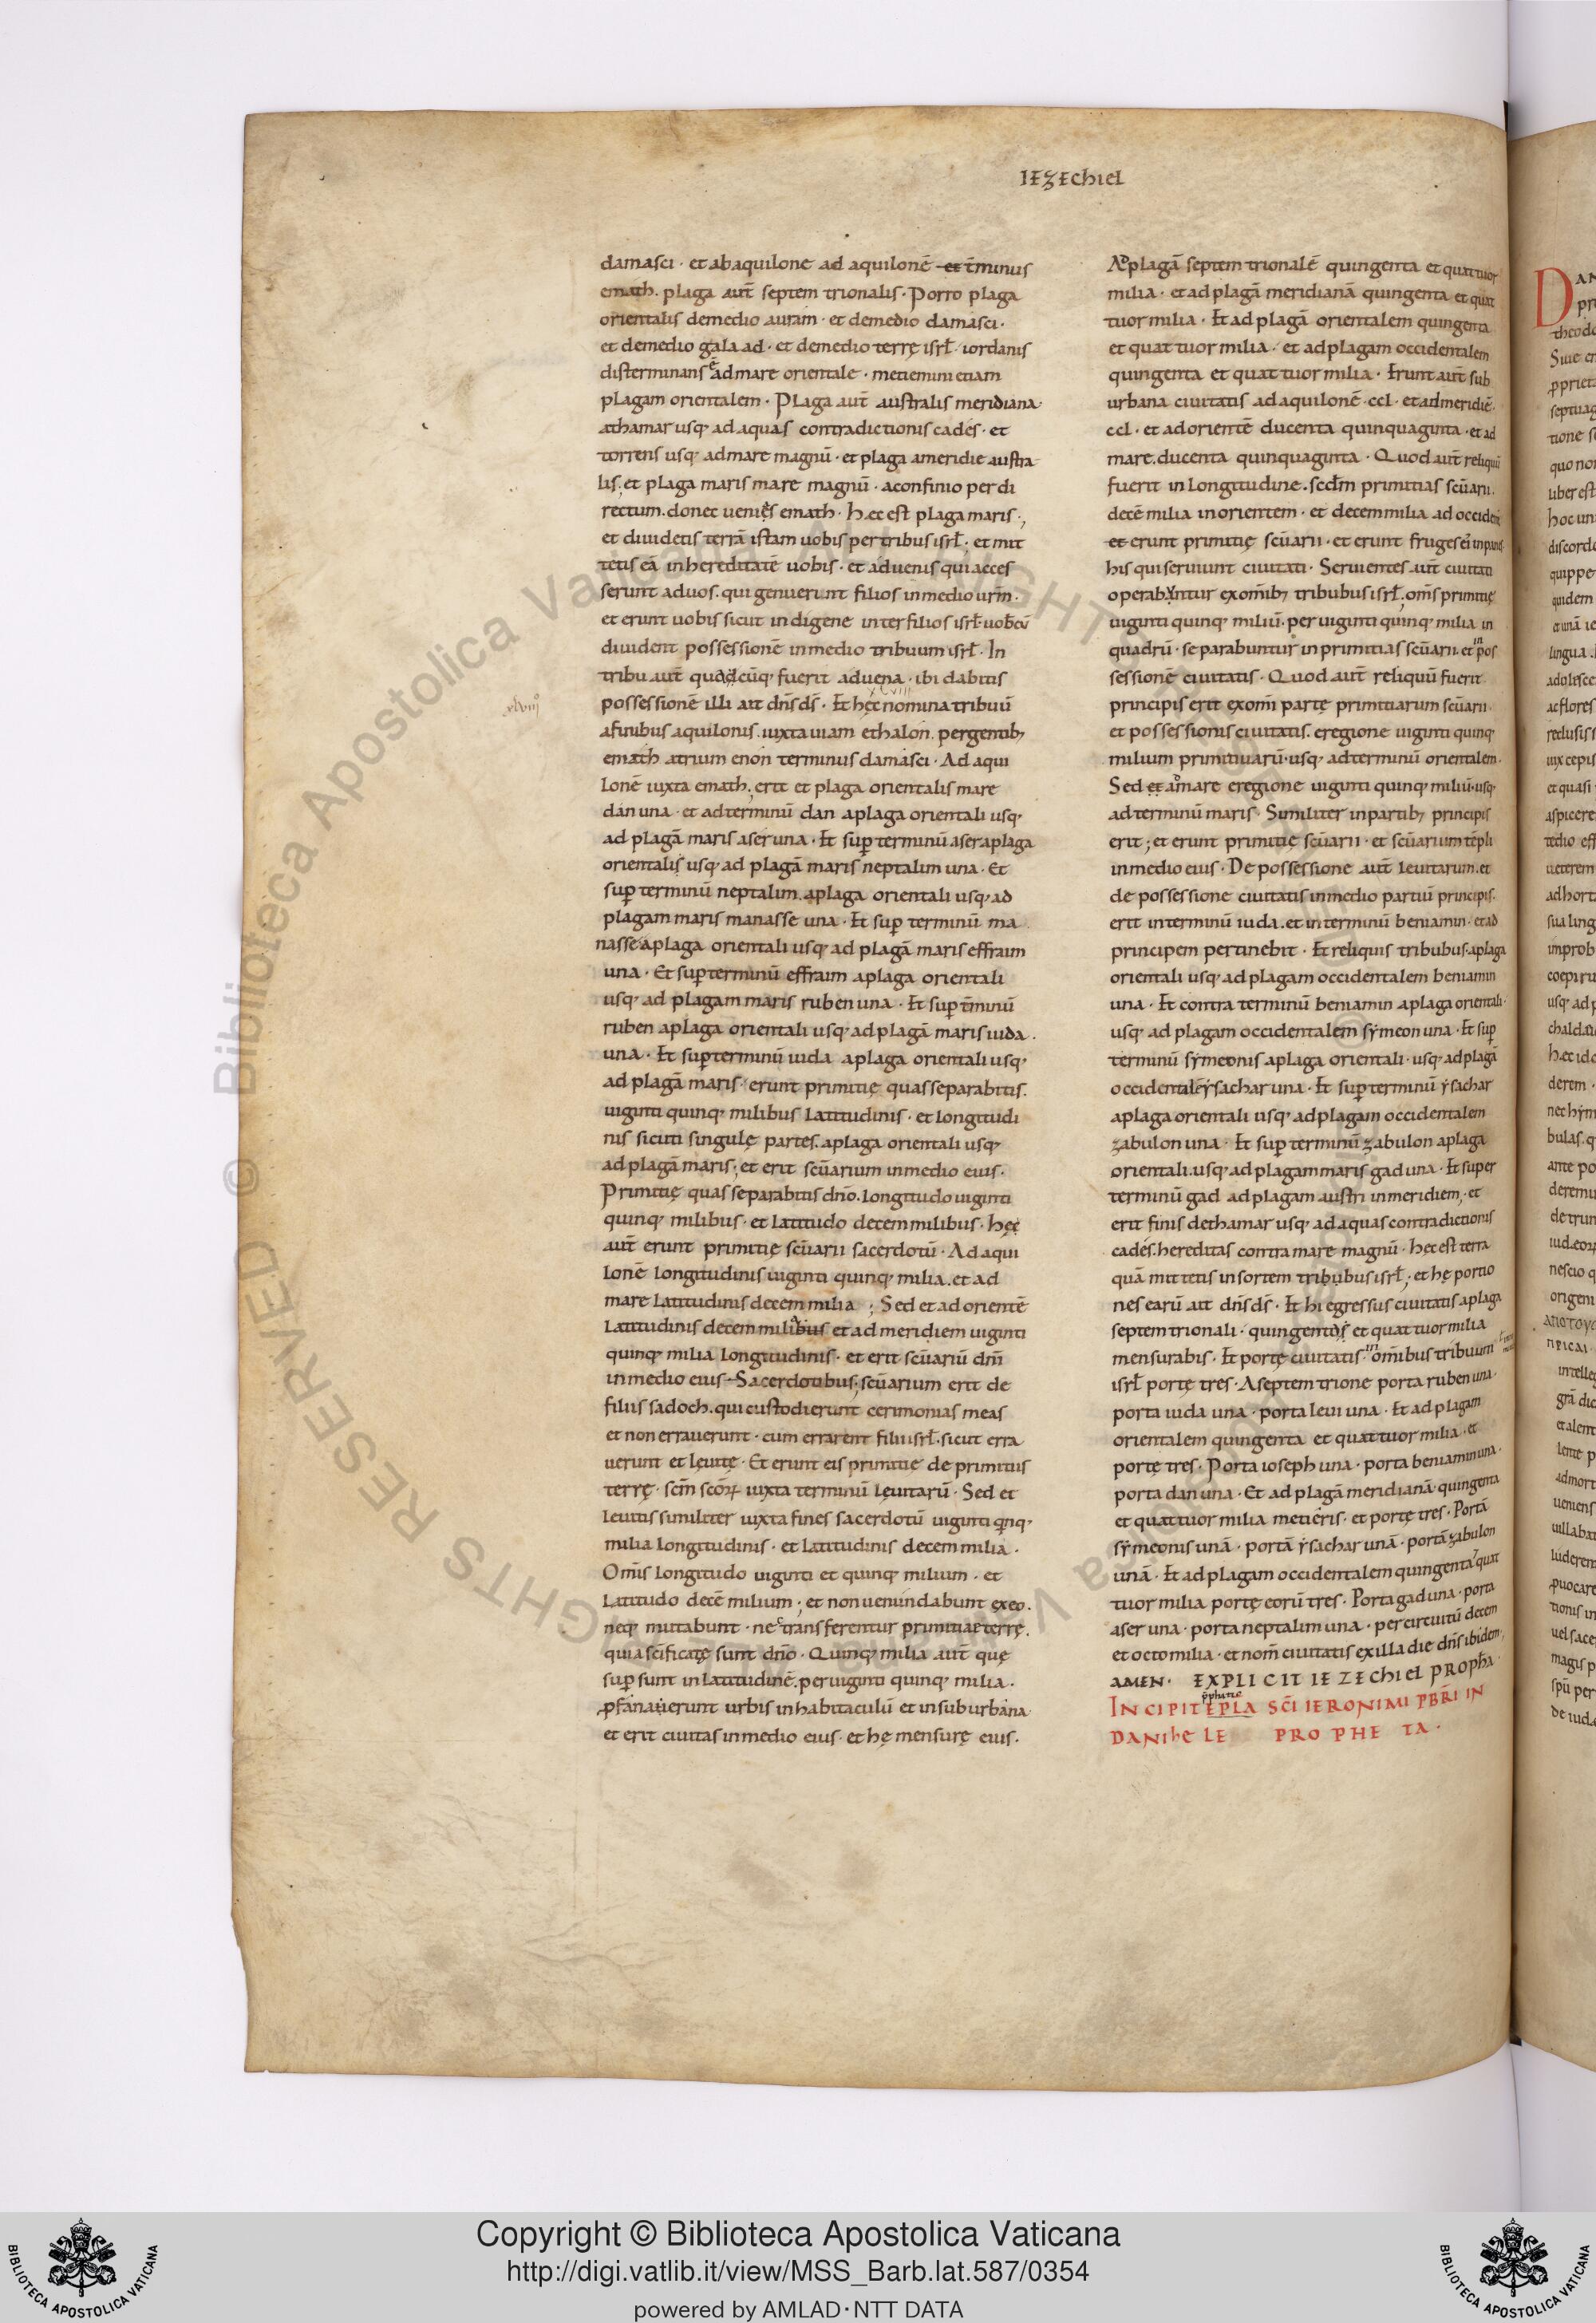 IEZEchiel
damasci · et abaquilone ad aquilonē et t̄minus
emath · plaga aut̄ septem trionalis · Porro plaga
orientalis demedio auram · et demedio damasci ·
et demedio gala ad · et demedio terrę isrł · iordanis
disterminans admare orientale · metiemini etiam
plagam orientalem · Plaga aut̄ australis meridiana ·
athamar usq; ad aquas contradictionis cades · et
torrens usq; admare magnū · et plaga ameridie austra
lis; et plaga maris mare magnū · aconfinio per di
rectum · donec uenies emath · Hęc est plaga maris ·,
et diuidetis terrā istam uobis per tribus isrł ; et mit
tetis eā inhereditatē uobis · et aduenis qui acces
serunt aduos · qui genuerunt filios inmedio urm̄ ·
et erunt uobis sicut indigene inter filios isrł uobcū
diuident possessionē inmedio tribuum isrł · In
tribu aut̄ quacūq; fuerit aduena · ibi dabitis
xlviii
possessionē illi ait dn̄s ds̄ · Et hęc nomina tribuū
afinibus aquilonis · iuxta uiam ethalon · pergentib;
emath atrium enon terminus damasci · Ad aqui
lonē iuxta emath ; erit et plaga orientalis mare
dan una · et adterminū dan aplaga orientali usq;
ad plagā maris aser una · Et sup̱ terminū aser aplaga
orientalis usq; ad plagā maris neptalim una · Et
sup̱ terminū neptalim · aplaga orientali usq; ad
plagam maris manasse una · Et sup̱ terminū ma
nasse aplaga orientali usq; ad plagā maris effraim
una · Et sup̱ terminū effraim aplaga orientali
usq; ad plagam maris ruben una · Et sup̱ t̄minū
ruben aplaga orientali usq; ad plagā maris iuda ·
una · Et sup̱ terminū iuda aplaga orientali usq;
ad plagā maris · erunt primitię quas separabitis ·
uiginti quinq; milibus latitudinis · et longitudi
nis sicuti singulę partes · aplaga orientali usq;
ad plagā maris ; et erit scūarium inmedio eius ·
Primitię quas separabitis dn̄o · longitudo uiginti
quinq; milibus · et latitudo decem milibus · hęc
aut̄ erunt primitię scūarii sacerdotū · Ad aqui
lonē longitudinis uiginti quinq; milia · et ad
mare latitudinis decem milia ; Sed et ad orientē
latitudinis decem milibus et ad meridiem uiginti
quinq; milia longitudinis · et erit scūariū dn̄i
inmedio eius · Sacerdotibus ; scūarium erit de
filiis sadoch · qui custodierunt cerimonias meas
et non errauerunt · cum errarent filii isrł · sicut erra
uerunt et leuitę · Et erunt eis primitię de primitiis
terrę · scm̄ scōꝝ iuxta terminū leuitarū · Sed et
leuitis similiter iuxta fines sacerdotū uiginti qinq;
milia longitudinis · et latitudinis decem milia ·
Om̄is longitudo uiginti et quinq; milium · et
latitudo decē milium ; et non uenundabunt ęx eo ·
neq; mutabunt · nec transferentur primitiae terrę ·
quia scīficatę sunt dn̄o · Quinq; milia aut̄ quę
sup̱ sunt in latitudinē · per uiginti quinq; milia ·
ꝓfana erunt urbis inhabitaculū et insuburbana ·
et erit ciuitas inmedio eius · et hę mensurę eius ·
Ad plagā septem trionalē quingenta et quattuor
milia · et ad plagā meridianā quingenta et quat
tuor milia · Et ad plagā orientalem quingenta
et quattuor milia · et ad plagam occidentalem
quingenta et quattuor milia · Erunt aut̄ sub
urbana ciuitatis ad aquilonē · ccl · et admeridiē ·
ccl · et ad orientē ducenta quinquaginta · et ad
mare · ducenta quinquaginta · Quod aut̄ reliquū
fuerit in longitudine · scdm̄ primitias scūarii ·
decē milia inorientem · et decem milia ad occidenē
et erunt primitię scūarii · et erunt fruges ei inpanis
his qui seruiunt ciuitati · Seruientes aut̄ ciuitati
operabuntur exomīb; tribubus isrł ; om̄s primitię
uiginti quinq; miliū · per uiginti quinq; milia in
quadrū · separabuntur in primitias scūarii · et in pos
sessionē ciuitatis · Quod aut̄ reliquū fuerit
principis erit exom̄i partę primitiarum scūarii ·
et possessionis ciuitatis · eregione uiginti quinq;
milium primitiuarū · usq; ad terminū orientalem ·
Sed et amare eregione uiginti quinq; miliū · usq;
ad terminū maris · Similiter in partib; principis
erit ; et erunt primitię scūarii · et scūarium tēpli
inmedio eius · De possessione aut̄ leuitarum · et
de possessione ciuitatis inmedio partiū principis ·
erit interminū iuda · et in terminū beniamin · et ad
principem pertinebit · Et reliquis tribubus · aplaga
orientali usq; ad plagam occidentalem beniamin
una · Et contra terminū beniamin aplaga orientali ·
usq; ad plagam occidentalem sẏmeon una · Et sup̱
terminū sẏmeonis aplaga orientali · usq; ad plagā
occidentalē ẏsachar una · Et sup̱ terminū ẏsachar
aplaga orientali usq; ad plagam occidentalem
zabulon una · Et sup̱ terminū zabulon aplaga
orientali · usq; ad plagam maris gad una · Et super
terminū gad ad plagam austri inmeridiem ; et
erit finis dethamar usq; ad aquas contradictionis
cades · hereditas contra mare magnū · hęc est terra
quā mittetis in sortem tribubus isrł ; et hę portio
nes earū ait dn̄s ds̄ · Et hi egressus ciuitatis aplaga
septem trionali · quingentos et quattuor milia
mensurabis · Et portę ciuitatis · in om̄ibus tribuum
isrł portę tres · Aseptem trione porta ruben una ·
porta iuda una · porta leui una · Et ad plagam
orientalem quingenta et quattuor milia · et
portę tres · Porta ioseph una · porta beniamin una ·
porta dan una · Et ad plagā meridianā · quingenta
et quattuor milia metieris · et portę tres · Portā
sẏmeonis unā · portā ẏsachar unā · portā zabulon
unā · Et ad plagam occidentalem quingenta quat
tuor milia portę eorū tres · Porta gad una · porta
aser una · porta neptalim una · per circuitū decem
et octo milia · et nom̄ ciuitatis ex illa die dn̄s ibidem ;
AMEN · EXPLICIT IEZEChiel PROPhA ·
INCIPIT EPLA SC̄I IERONIMI PBR̄I IN
DANIhELE PROPHETA ·
Copyright © Biblioteca Apostolica Vaticana
http://digi.vatlib.it/view/MSS_Barb.lat.587/0354
powered by AMLAD·NTT DATA
BIBLIOTECA APOSTOLICA VATICANA
BIBLIOTECA APOSTOLICA VATICANA